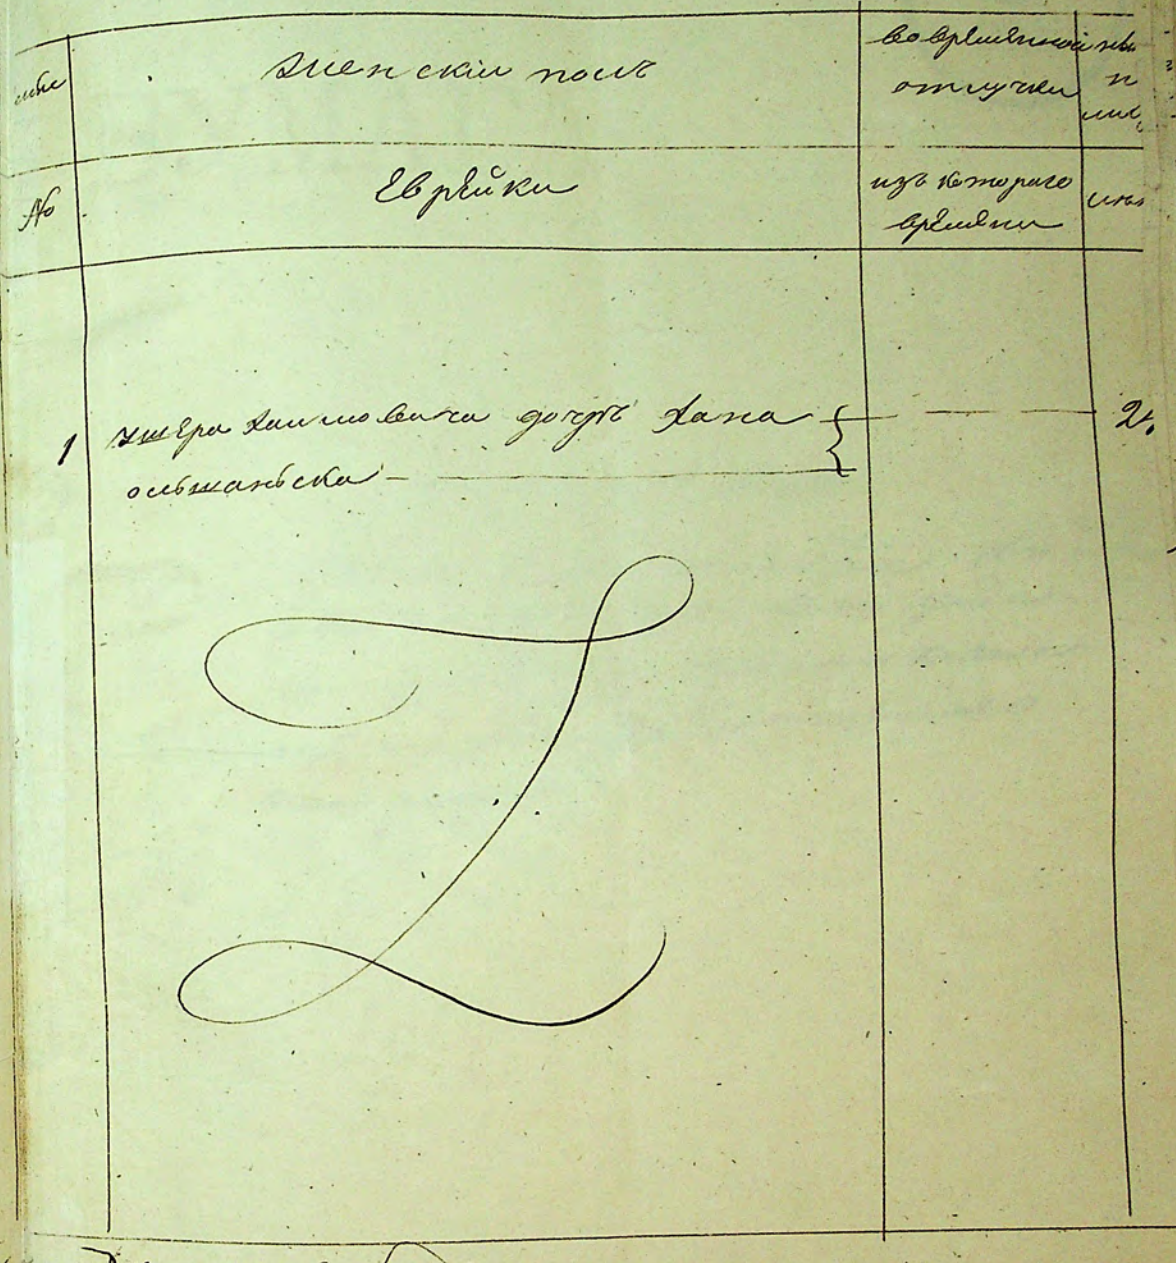 женскій полъ
во временной
отлучки
№
Еврейки
изъ котораго
времени
1
Ушера Хаимовича дочрь Хана
ольшаньска
2.